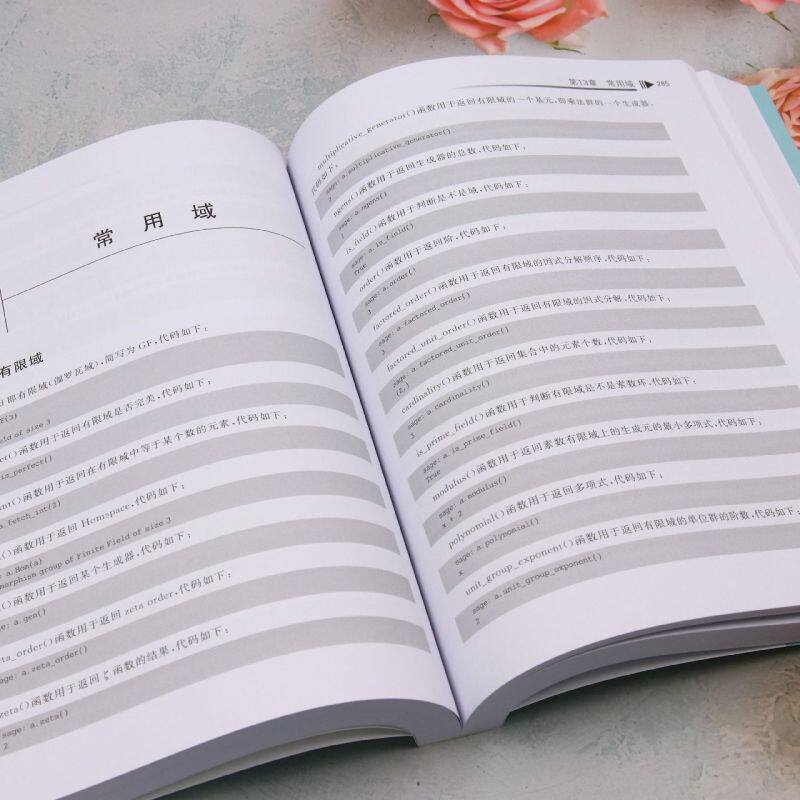 常用域
有限域
即有限域(伽罗瓦域),简写为 GF,代码如下:
field of size 3
函数用于返回有限域是否完美,代码如下:
is_perfect()
函数用于返回在有限域中等于某个数的元素,代码如下:
a.fetch_int(2)
()函数用于返回 Homspace,代码如下:
: a.Hom(a)
morphism group of Finite Field of size 3
()函数用于返回某个生成器,代码如下:
e: a.gen()
eta_order()函数用于返回 zeta order,代码如下:
e: a.zeta_order()
zeta()函数用于返回 ζ 函数的结果,代码如下:
sage: a.zeta()
2
第13章 常用域 285
multiplicative_generator()函数用于返回有限域的一个基元,即乘法群的一个生成器,
代码如下:
sage: a.multiplicative_generator()
2
ngens()函数用于返回生成器的总数,代码如下:
sage: a.ngens()
1
is_field()函数用于判断是不是域,代码如下:
sage: a.is_field()
True
order()函数用于返回阶,代码如下:
sage: a.order()
3
factored_order()函数用于返回有限域的因式分解顺序,代码如下:
sage: a.factored_order()
3
factored_unit_order()函数用于返回有限域的因式分解,代码如下:
sage: a.factored_unit_order()
(2,)
cardinality()函数用于返回集合中的元素个数,代码如下:
sage: a.cardinality()
3
is_prime_field()函数用于判断有限域是不是素数环,代码如下:
sage: a.is_prime_field()
True
modulus()函数用于返回素数有限域上的生成元的最小多项式,代码如下:
sage: a.modulus()
x + 2
polynomial()函数用于返回多项式,代码如下:
sage: a.polynomial()
x
unit_group_exponent()函数用于返回有限域的单位群的阶数,代码如下:
sage: a.unit_group_exponent()
2